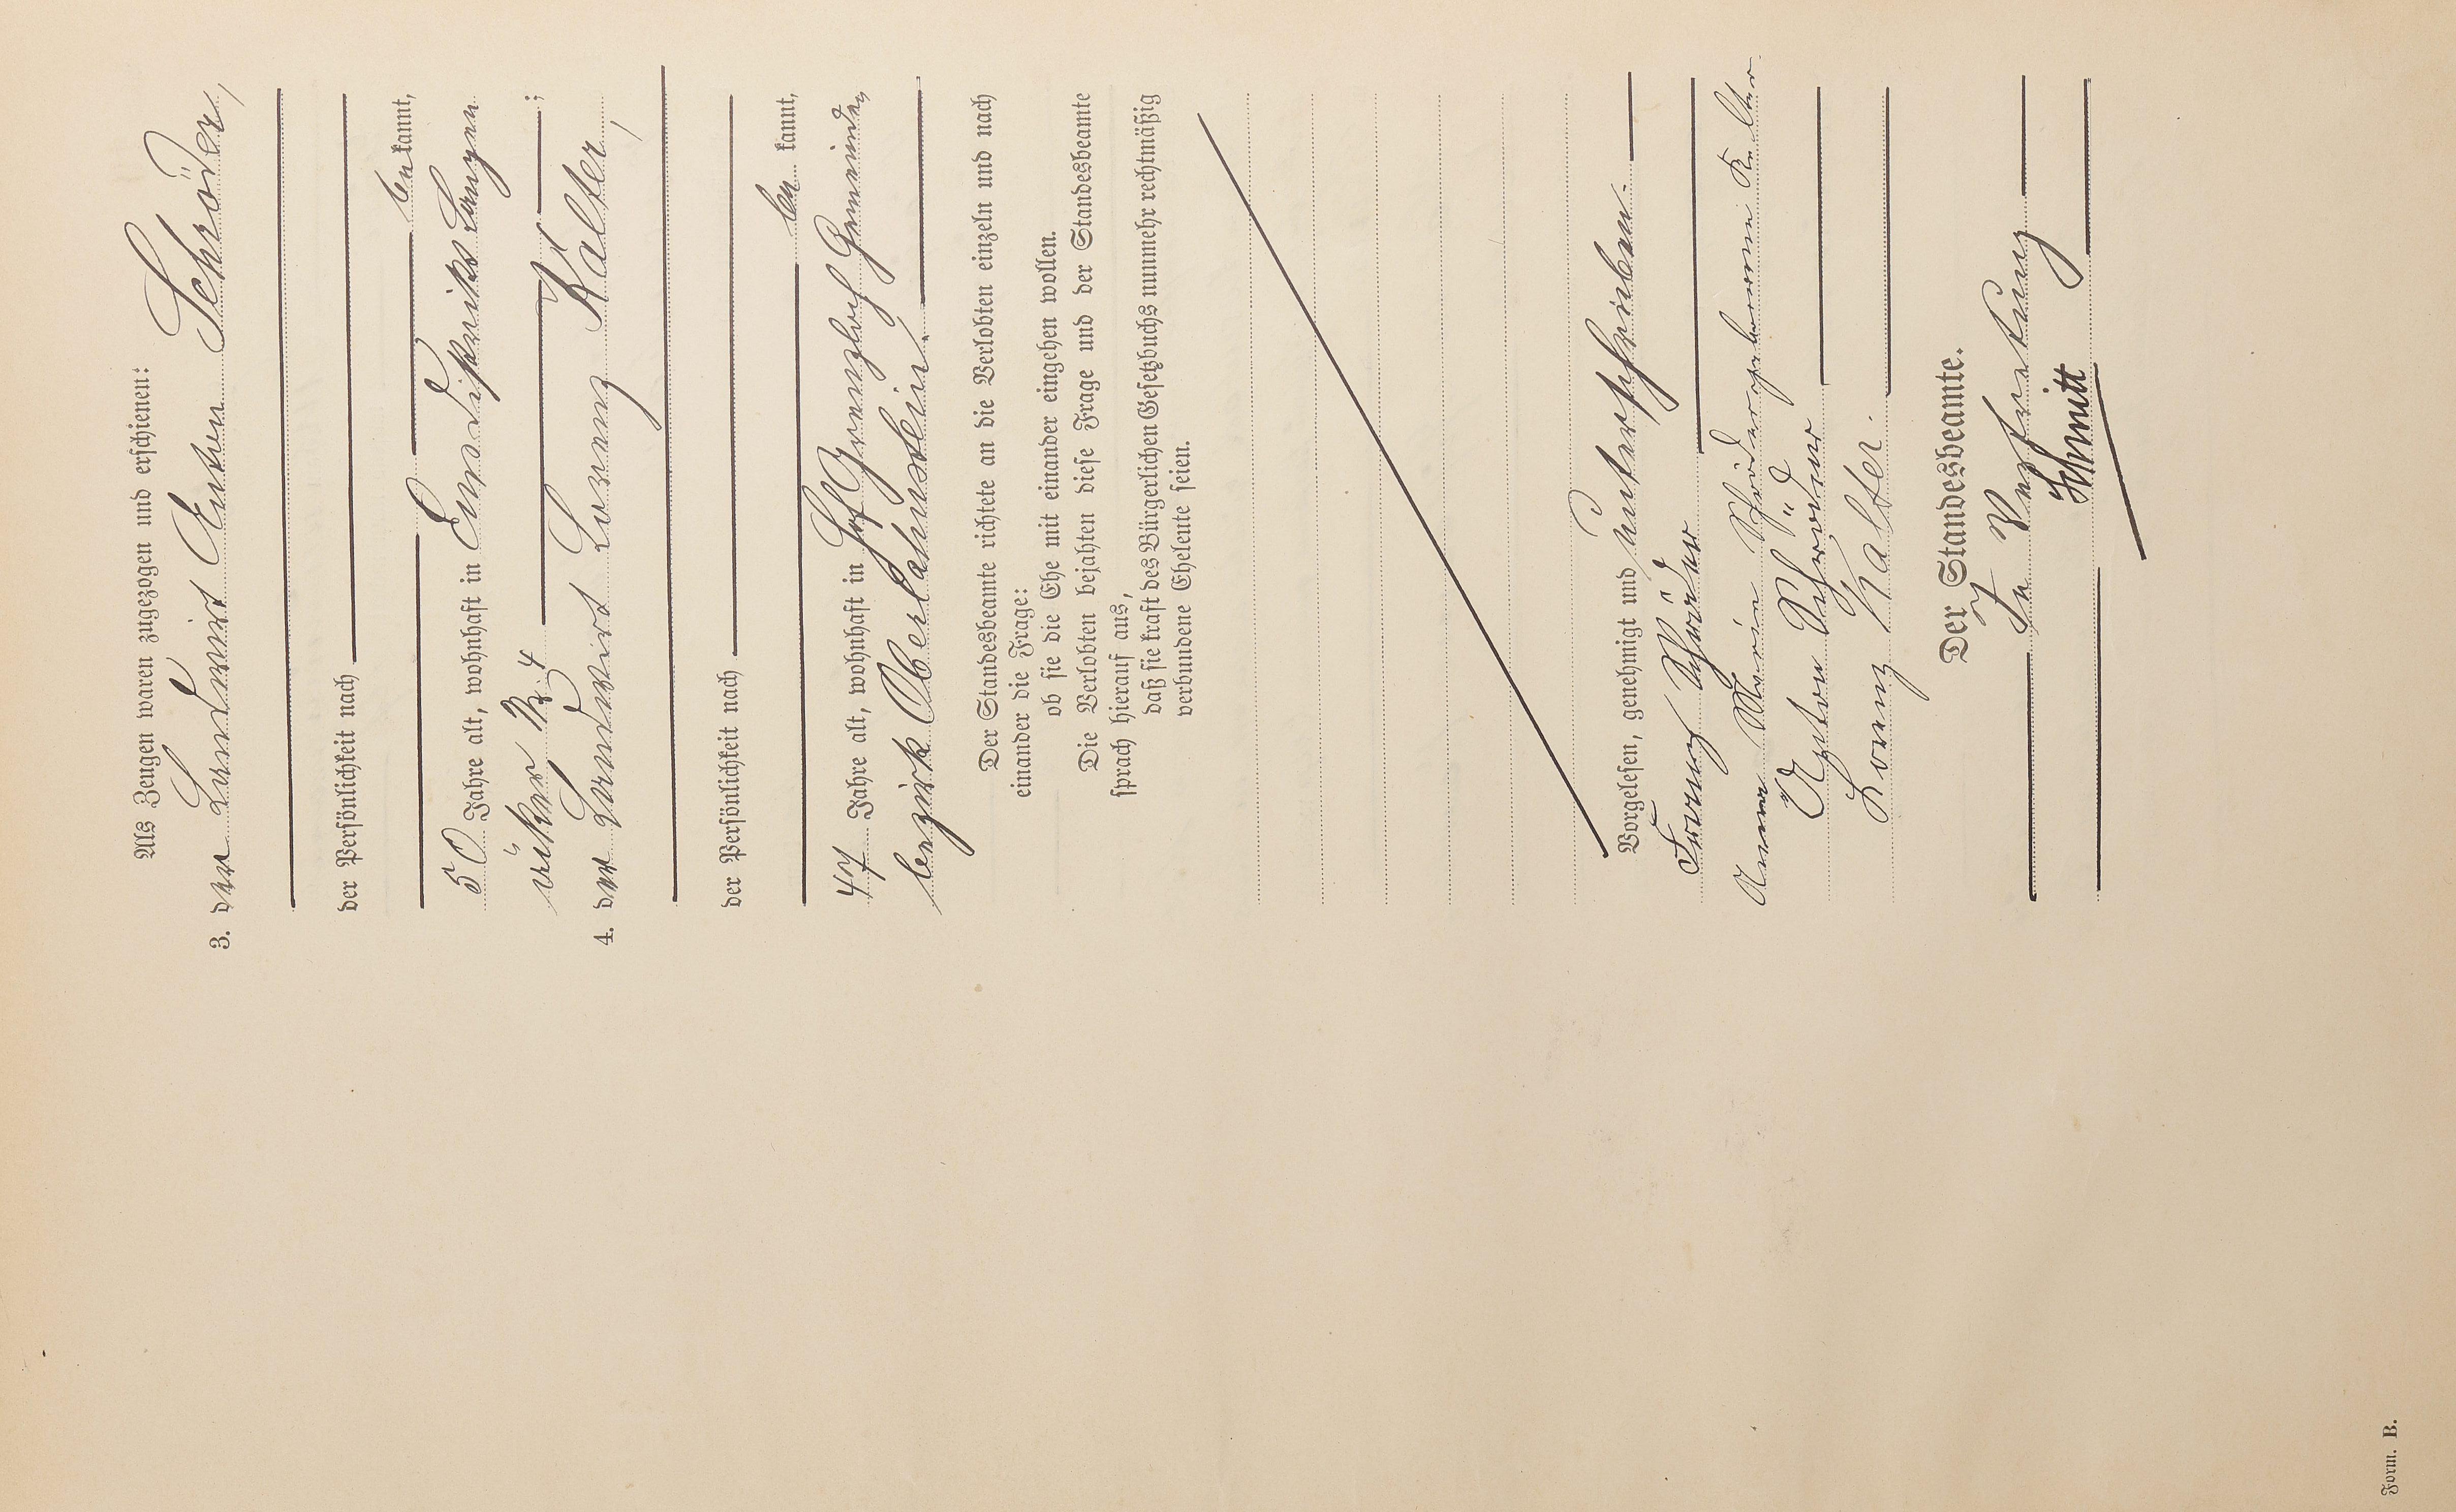 Als Zeugen waren zugezogen und erschienen:
3. der Landwirt Anton Schröder,
der Persönlichkeit nach
be kannt,
50 Jahre alt, wohnhaft in Ems Distrikt Langen
äcker Nr. 4 ;
4. der Landwirt Lorenz Kalter,
der Persönlichkeit nach
be kannt,
47 Jahre alt, wohnhaft in Hof Grenzloch Gemeinde,
bezirk Oberlahnstein.
Der Standesbeamte richtete an die Verlobten einzeln und nach
einander die Frage:
ob sie die Ehe mit einander eingehen wollen.
Die Verlobten bejahten diese Frage und der Standesbeamte
sprach hierauf aus,
daß sie kraft des Bürgerlichen Gesetzbuchs nunmehr rechtmäßig
verbundene Eheleute seien.
Vorgelesen, genehmigt und unterschrieben.
Franz Schröder
Anna Maria Schröder geborene Kalter
Anton Schröder
Lorenz Kalter.
Der Standesbeamte.
In Vertretung
Schmitt
Form. B.